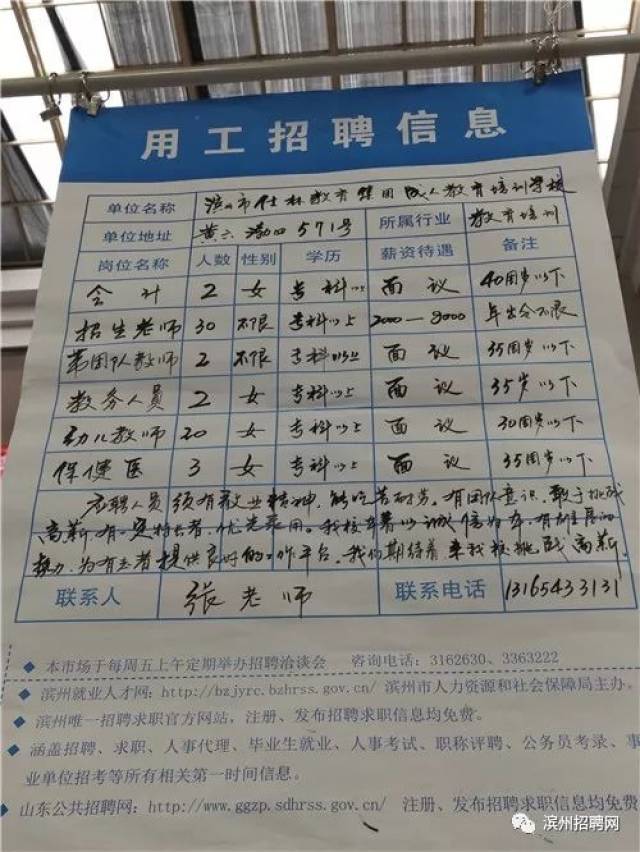 用工招聘信息
单位名称 滨州市仕林教育集团成人教育培训学校
单位地址 黄六渤四571号 所属行业 教育培训
岗位名称 人数 性别 学历 薪资待遇 备注
会计 2 女 专科以上 面议 40周岁以下
招生老师 30 不限 专科以上 2000—8000 年龄不限
2 不限 专科以上 面议 35周岁以下
教务人员 2 女 专科以上 面议 35岁以下
幼儿教师 20 女 专科以上 面议 30周岁以下
保健医 3 女 专科以上 面议 35周岁以下
应聘人员须有敬业精神,能吃苦耐劳。有团队意识。敢于挑战
高薪。有一定特长者,优先录用。我校本着以诚信为本,有雄厚的
势力,为有志者提供良好的工作平台。我们期待着来我校挑战高薪。
联系人 张老师 联系电话 13165433131
◆ 本市场于每周五上午定期举办招聘洽谈会 咨询电话:3162630、3363222
◆ 滨州就业人才网:http://bzjyrc.bzhrss.gov.cn/ 滨州市人力资源和社会保障局主办。
◆ 滨州唯一招聘求职官方网站,注册、发布招聘求职信息均免费。
◆ 涵盖招聘、求职、人事代理、毕业生就业、人事考试、职称评聘、公务员考录、事
业单位招考等所有相关第一时间信息。
◆ 山东公共招聘网:http://www.ggzp.sdhrss.gov.cn/ 注册、发布招聘求职信息均免费
滨州招聘网